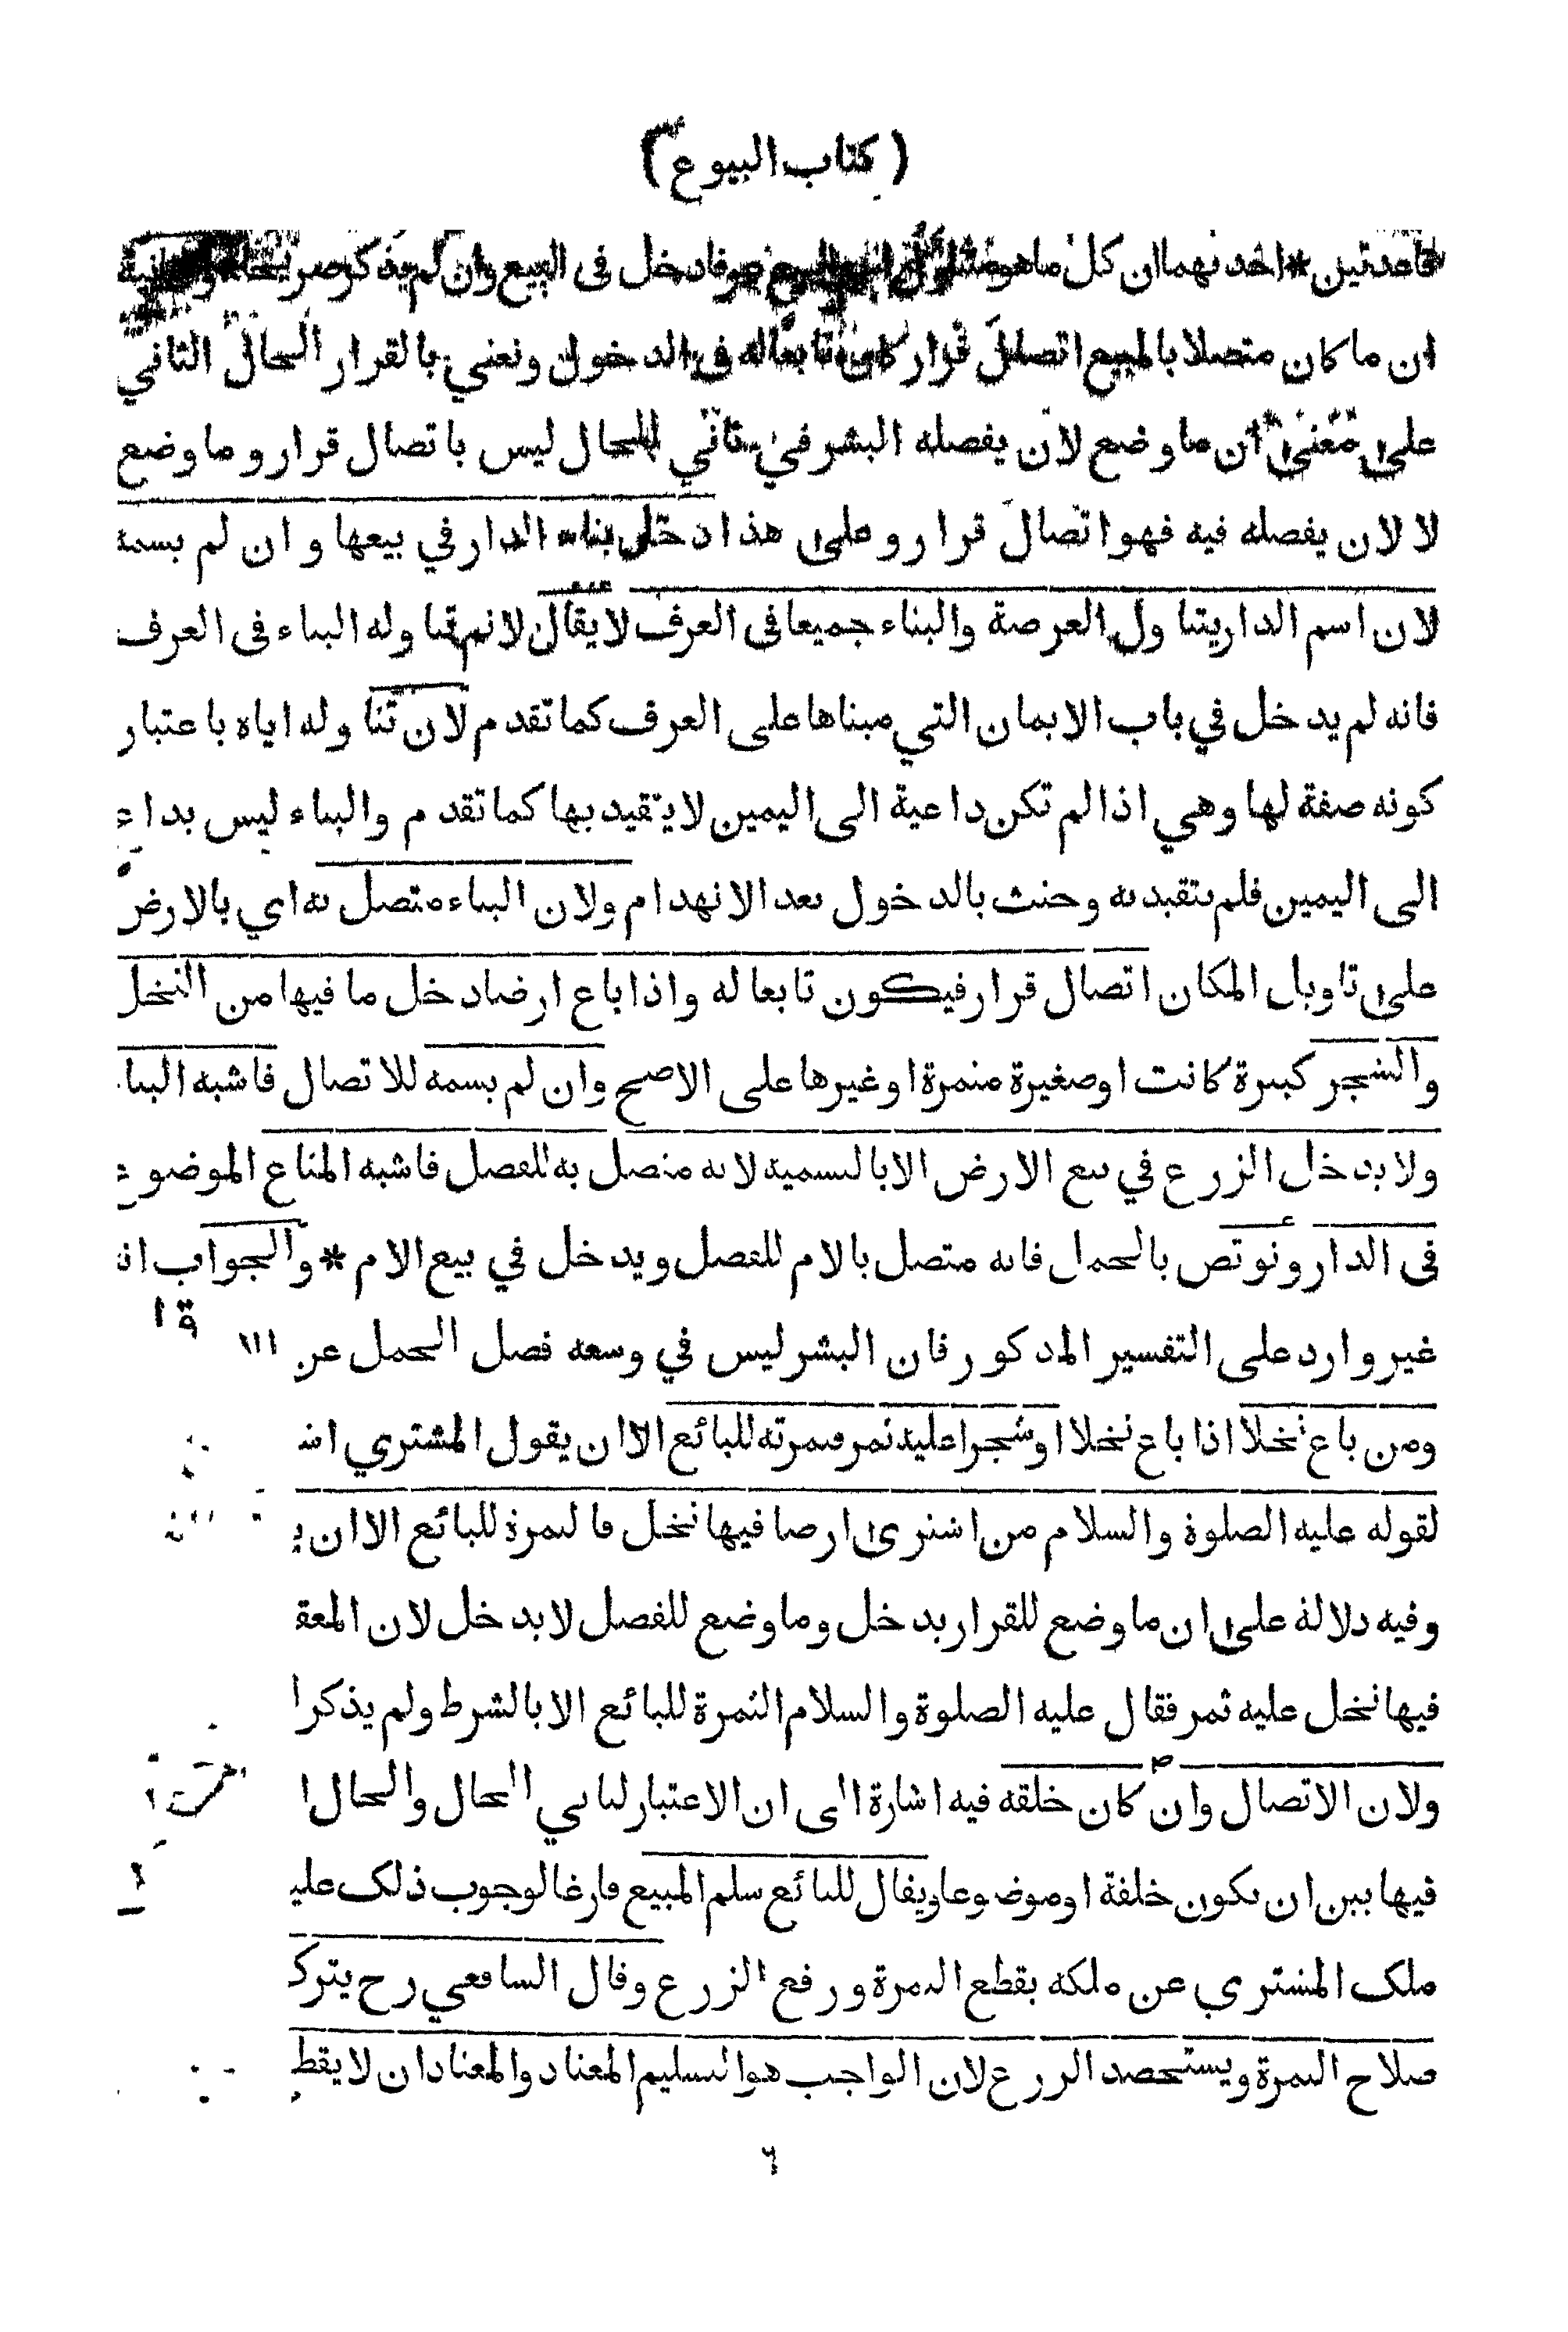 ( كتاب البيوع )
قاعدتين * احدىهما ان كل ما هو متناول اسم المبيع عرفا دخل في البيع وان لم يذكر صريحا والثانية
ان ما كان متصلا بالمبيع اتصال قرار كان تابعا له في الدخول ونعني بالقرار الحال الثاني
على معنى ان ما وضع لان يفصله البشر في ثاني الحال ليس باتصال قرار وما وضع
لا لان يفصله فيه فهو اتصال قرار وعلى هذا دخل بناء الدار في بيعها وان لم يسمه
لان اسم الدار يتناول العرصة والبناء جميعا في العرف لا يقال لا نم تناوله البناء في العرف
فانه لم يدخل في باب الايمان التي مبناها على العرف كما تقدم لان تناوله اياه باعتبار
كونه صفة لها وهي اذا لم تكن داعية الى اليمين لا يتقيد بها كما تقدم والبناء ليس بداع
الى اليمين فلم يتقيد به وحنث بالدخول بعد الانهدام ولان البناء متصل به اي بالارض
على تاويل المكان اتصال قرار فيكون تابعا له واذا باع ارضا دخل ما فيها من النخل
والشجر كبيرة كانت او صغيرة مثمرة او غيرها على الاصح وان لم يسمه للاتصال فاشبه البناء
ولا يدخل الزرع في بيع الارض الا بالتسمية لانه متصل به للفصل فاشبه المتاع الموضوع
في الدار ونوقض بالحمل فانه متصل بالام للفصل ويدخل في بيع الام * والجواب انه
غير وارد على التفسير المذكور فان البشر ليس في وسعه فصل الحمل عن
ومن باع نخلا اذا باع نخلا او شجرا عليه ثمر فثمرته للبائع الا ان يقول المشتري اشـ
لقوله عليه الصلوة والسلام من اشترى ارضا فيها نخل فالثمرة للبائع الا ان يـ
وفيه دلالة على ان ما وضع للقرار يدخل وما وضع للفصل لا يدخل لان المعقـ
فيها نخل عليه ثمر فقال عليه الصلوة والسلام الثمرة للبائع الا بالشرط ولم يذكر ا
ولان الاتصال وان كان خلقه فيه اشارة الى ان الاعتبار لثاني الحال والحال ا
فيها بين ان يكون خلقة او موضوعا ويقال للبائع سلم المبيع فارغا لوجوب ذلك عليـ
ملك المشتري عن ملكه بقطع الثمرة ورفع الزرع وقال الشافعي رح يتركـ
صلاح الثمرة ويستحصد الزرع لان الواجب هو التسليم المعتاد والمعتاد ان لا يقطـ
٦